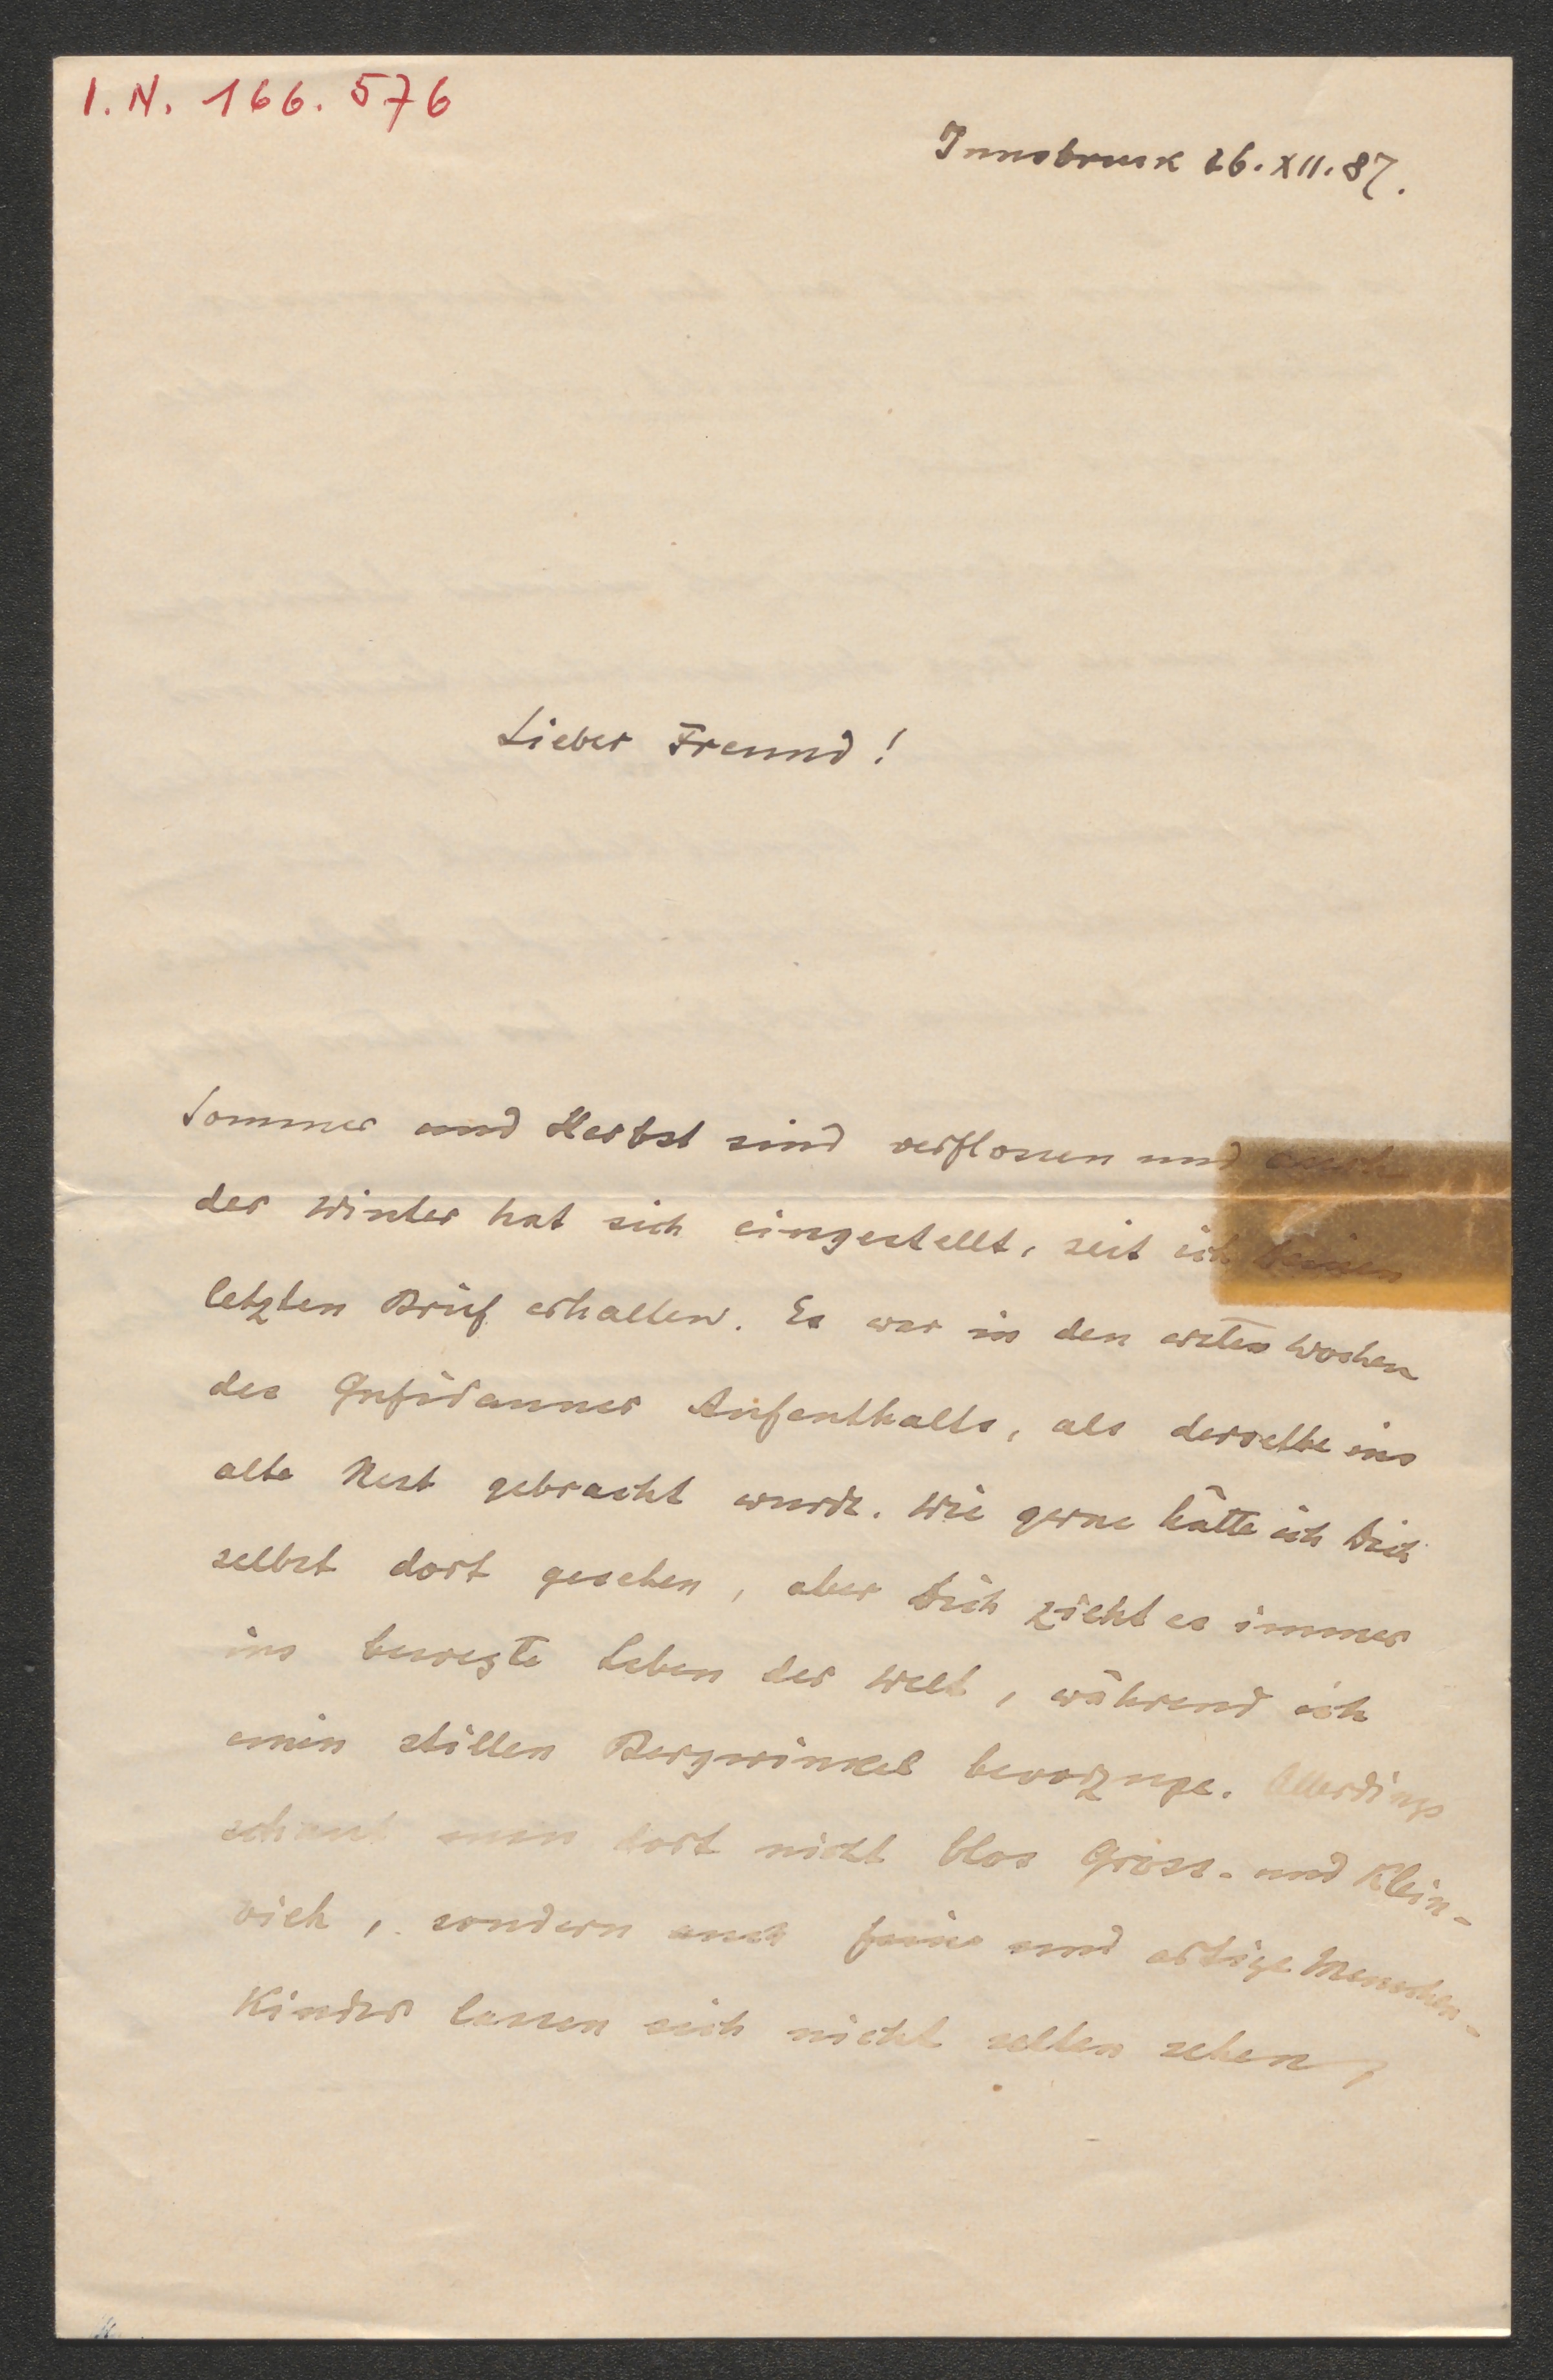 I.N. 166.576
Innsbruck 26.XII.87.
Lieber Freund!
Sommer und Herbst sind verflossen und auch
der Winter hat sich eingestellt, seit ich Deinen
letzten Brief erhalten. Es war in den ersten Wochen
des Gufidauner Aufenthalts, als derselbe ins
alte Nest gebracht wurde. Wie gerne hätte ich Dich
selbst dort gesehen, aber Dich zieht es immer
ins bewegte Leben der Welt, während ich
einen stillen Bergwinkel bevorzuge. Allerdings
schaut man dort nicht blos Gross- und Klein-
vieh, sondern auch feine und artige Menschen-
Kinder lassen sich nicht selten sehen,